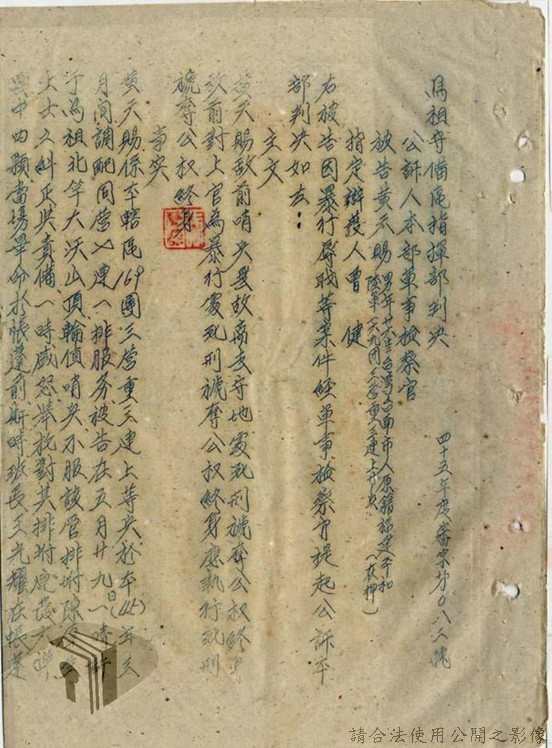 馬祖守備區指揮部判決
四十五年度審字第〇八三號
公訴人本部軍事檢察官
被告黃天賜男年廿八歲台灣台南市人原籍福建平和
陸軍一六九團三營重三連上等兵(在押)
指定辯護人曾健
右被告因暴行辱職等案件經軍事檢察官提起公訴本
部判決如左：
主文
黃天賜敵前哨兵無故離去守地處死刑褫奪公權終身
敵前對上官為暴行處死刑褫奪公權終身應執行死刑
褫奪公權終身
事實
黃天賜係本轄區169團三營重三連上等兵於本(45)年三
月間調配同營七連一排服務被告在五月廿九日八時許
於馬祖北竿大沃山頂輪值哨兵不服該管排附陳
上士之糾正與責備一時感怒舉槍對其排附連發
中四顆當場畢命於帳蓬前斯時班長王光耀在帳蓬
請合法使用公開之影像